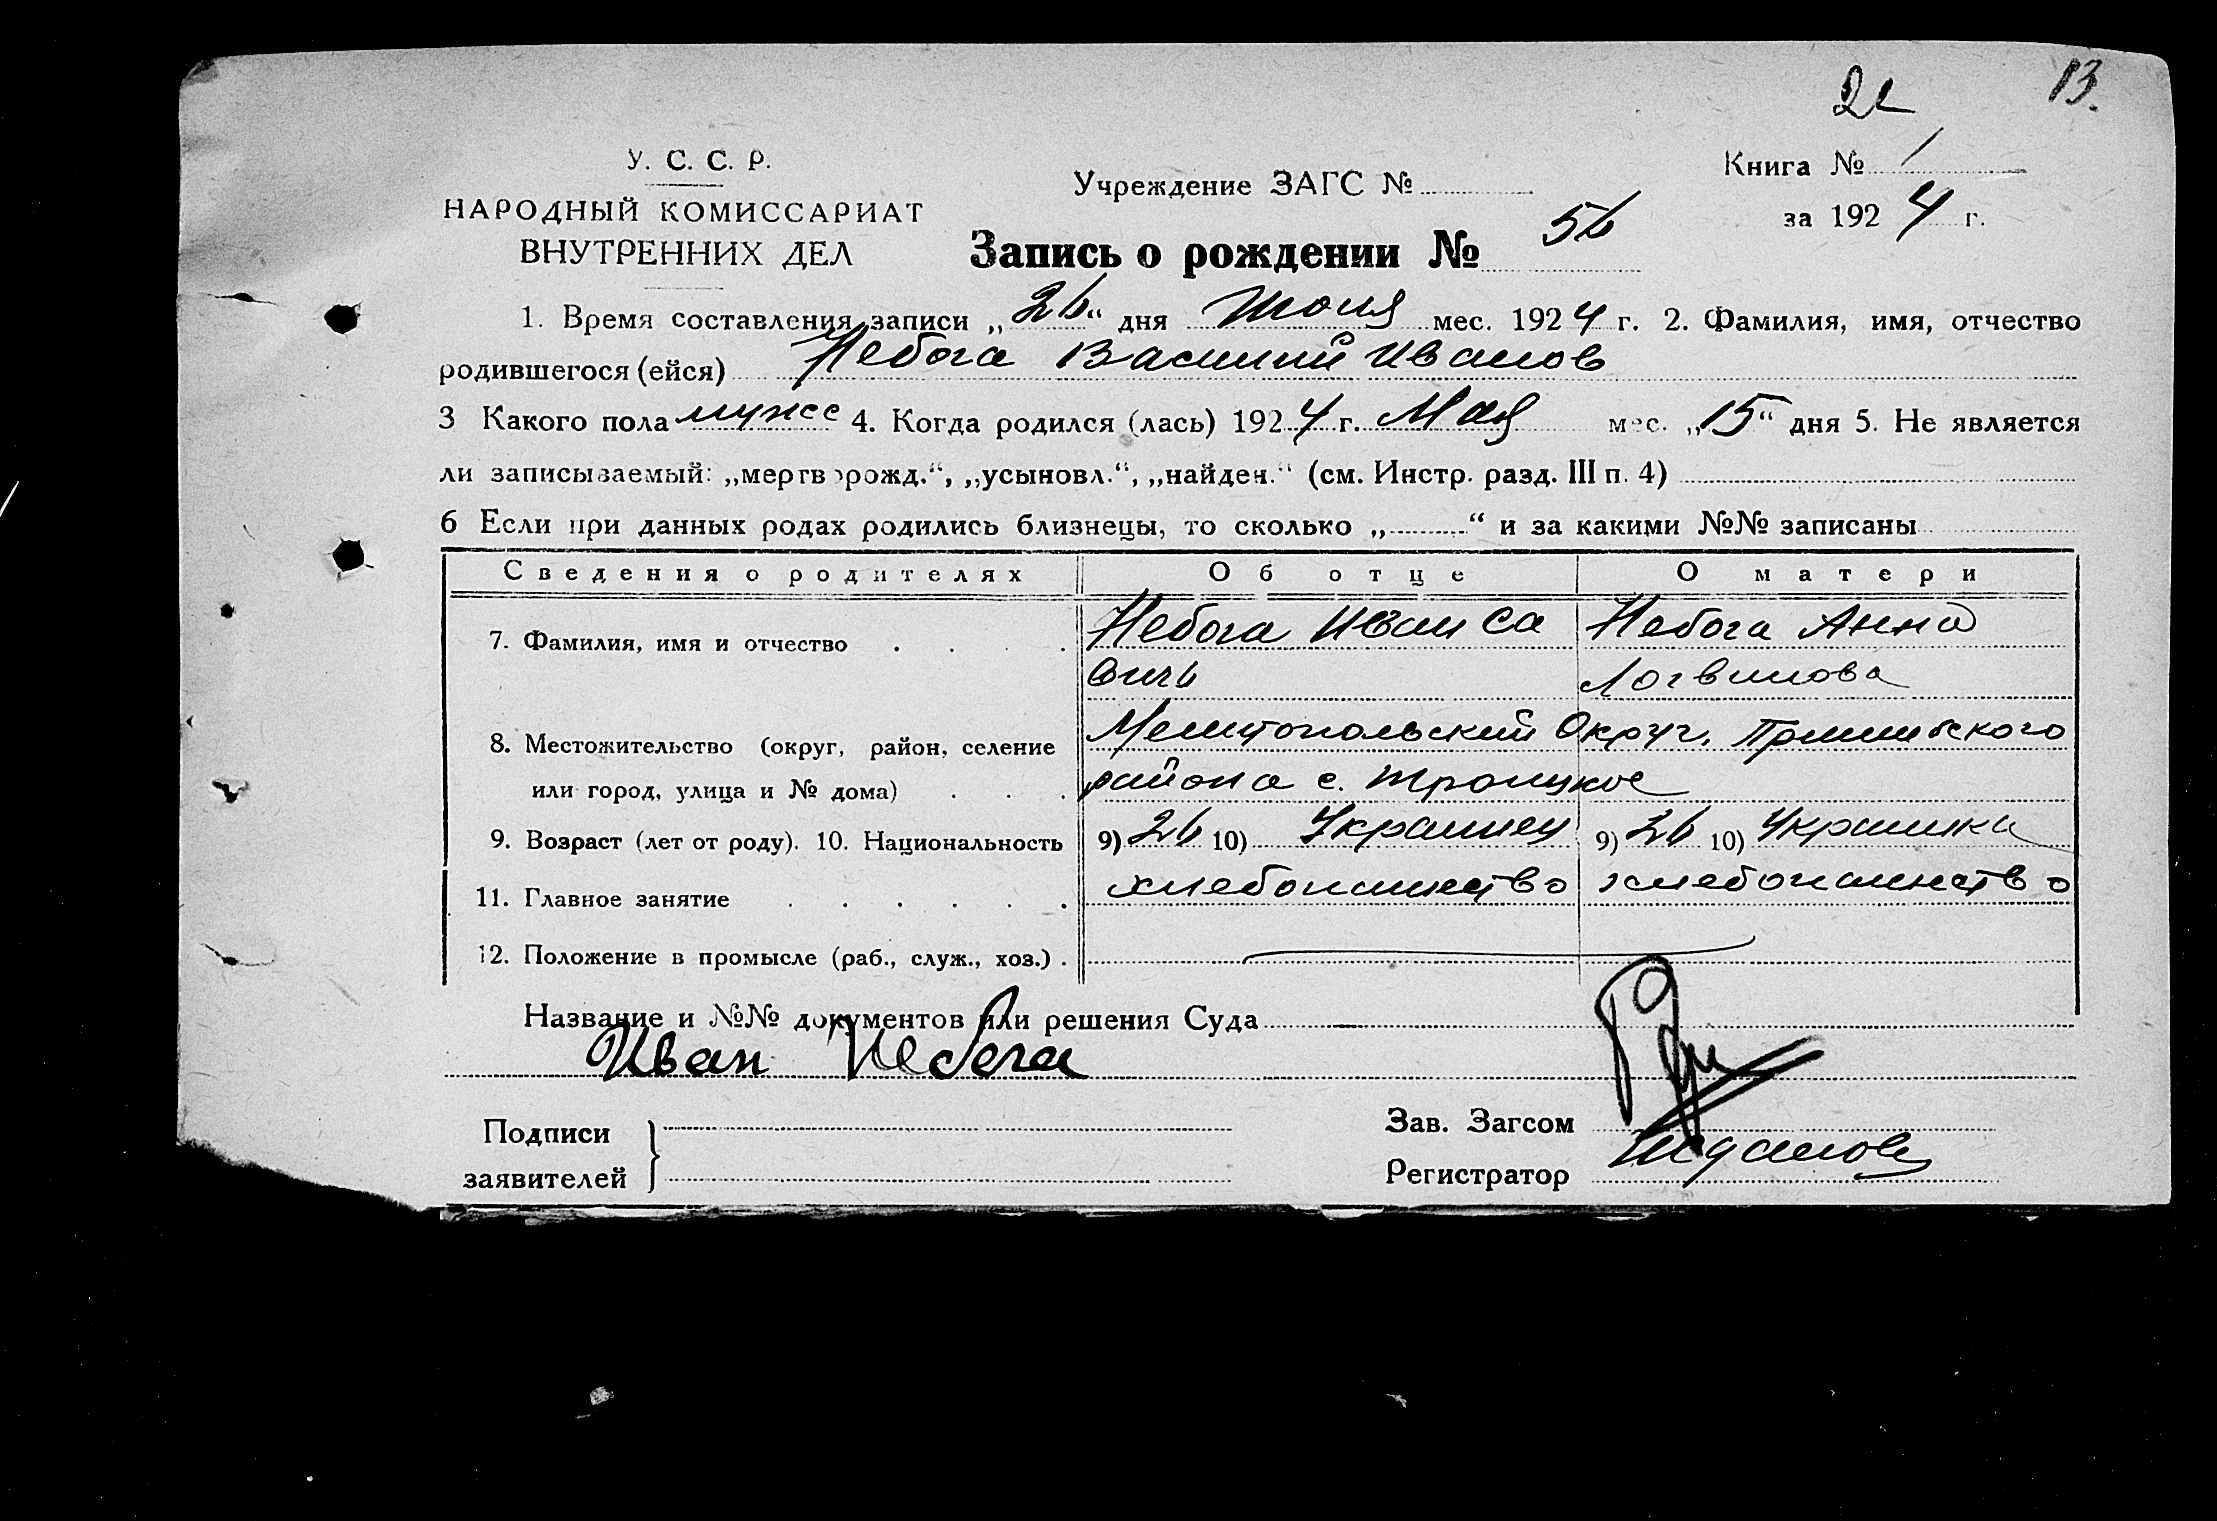 13.
У. С. С. Р.
НАРОДНЫЙ КОМИССАРИАТ
ВНУТРЕННИХ ДЕЛ
Учреждение ЗАГС №
Книга № 1
за 1924 г.
Запись о рождении № 56
1. Время составления записи „26“ дня Июня мес. 1924 г. 2. Фамилия, имя, отчество
родившегося (ейся) Небога Василий Иванов
3 Какого пола мужс 4. Когда родился (лась) 1924 г. Мая мес. „15“ дня 5. Не является
ли записываемый: „мертворожд.“, „усыновл.“, „найден.“ (см. Инстр. разд. III п. 4)
6 Если при данных родах родились близнецы, то сколько „ “ и за какими №№ записаны
Сведения о родителях Об отце О матери
7. Фамилия, имя и отчество Небога Иван Са Небога Анна
вичь Логвинова
8. Местожительство (округ, район, селение Мелитопольский Округ, Пришибского
или город, улица и № дома) района с. Троицкое
9. Возраст (лет от роду). 10. Национальность 9) 26 10) Украинец 9) 26 10) Украинка
11. Главное занятие хлебопашество хлебопашество
12. Положение в промысле (раб., служ., хоз.)
Название и №№ документов или решения Суда
Иван Небога
Подписи
заявителей
Зав. Загсом
Регистратор